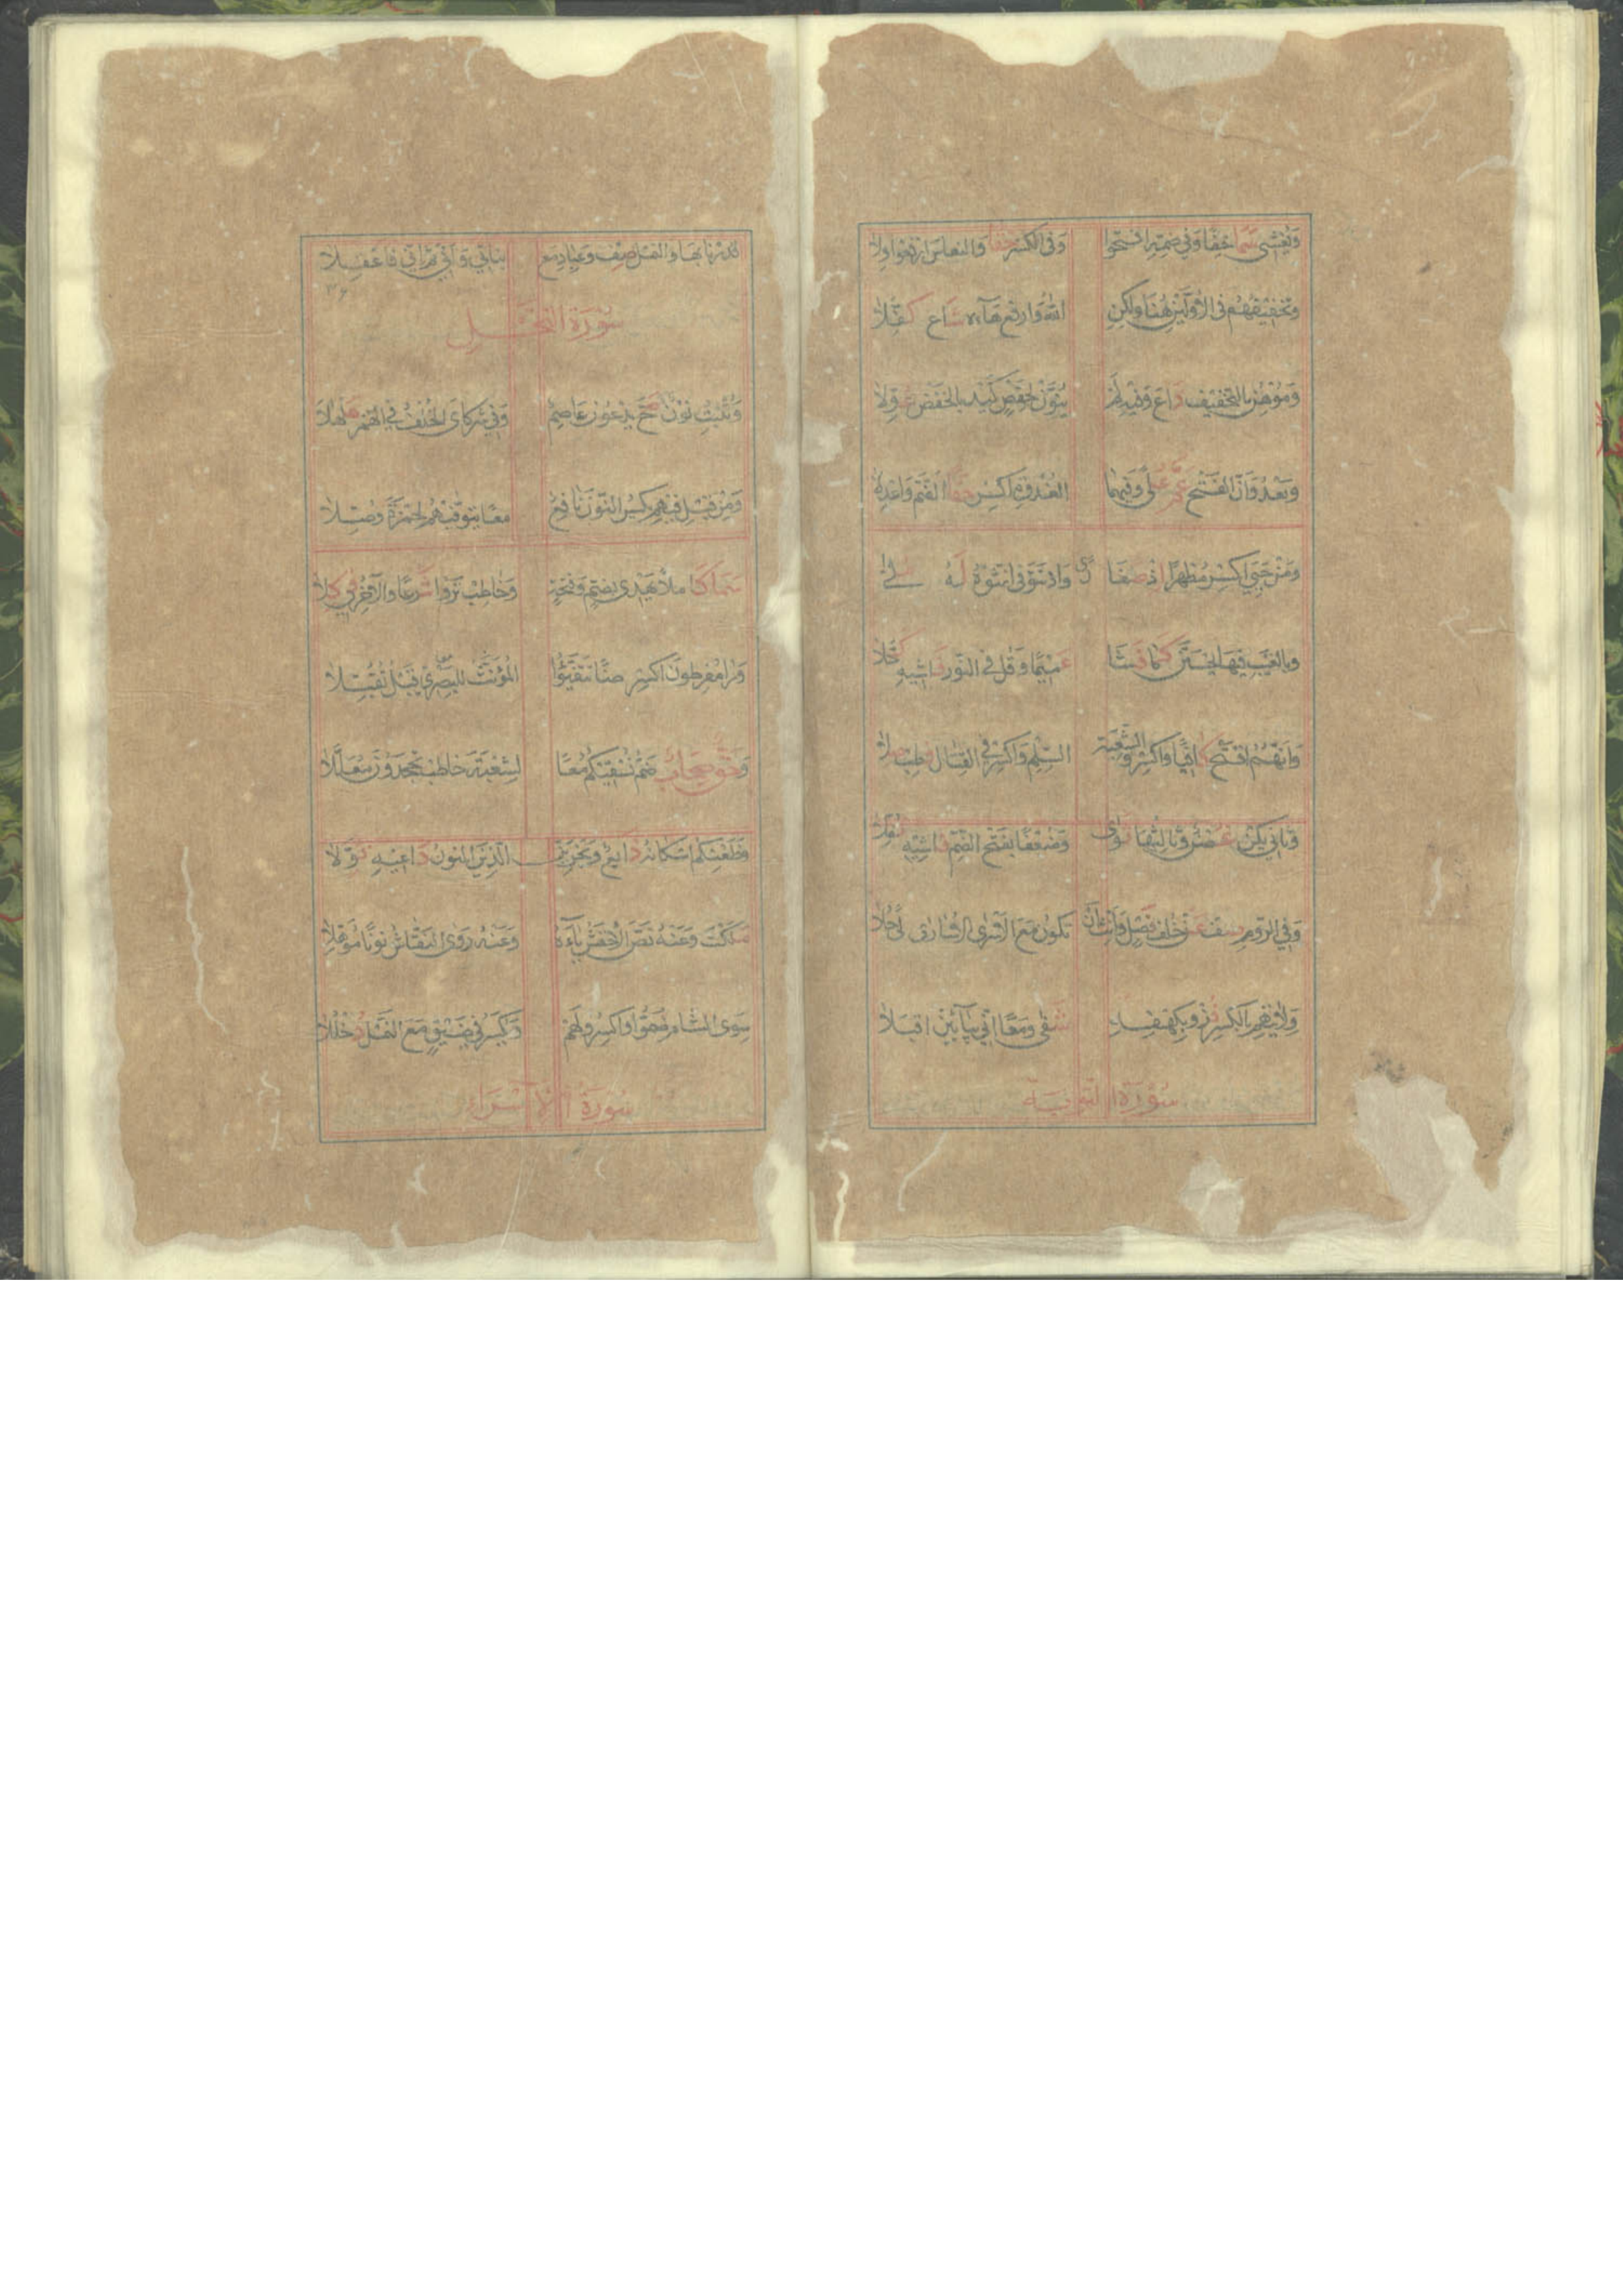 وَيُغْشِى سَمَا خِفًّا وَفِى ضَمِّهِ افْتَحُوا وَفِى الْكَسْرِ حَقًّا وَالنُّعَاسَ ارْفَعُوا وِلَا
وَتَخْفِيفُهُمْ فِى الْأَوَّلَيْنِ هُنَا وَلٰكِنِ اللّٰهُ وَارْفَعْ هَاءَهُ شَاعَ كُفَّلَا
وَمُوهِنُ بِالتَّخْفِيفِ ذَاعَ وَفِيهِ لَمْ يُنَوَّنْ لِحَفْصٍ كَيْدَ بِالْخَفْضِ عَوَّلَا
وَبَعْدُ وَاِنَّ الْفَتْحُ عَمَّ عُلًى وَفِيهِمَا الْعُدْوَةِ اكْسِرْ حَقًّا الضَّمَّ وَاعْدِلَا
وَمَنْ حَيِىَ اكْسِرْ مُظْهِرًا اِذْ صَفَا وَاِذْ يَتَوَفَّى اَنِّثُوهُ لَهُ
وَبِالْغَيْبِ فِيهَا يَحْسَبَنَّ كَمَا فَشَا عَمِيمًا وَقُلْ فِى النُّورِ فَاشِيهِ كَحَّلَا
وَاَنَّهُمُ افْتَحْ كَافِيًا وَاكْسِرُوا لِشُعْبَةَ السَّلْمَ وَاكْسِرْ فِى الْقِتَالِ فَطِبْ صِلَا
وَثَانِى يَكُنْ غُصْنٌ وَثَالِثُهَا ثَوَى وَضُعْفًا بِفَتْحِ الضَّمِّ فَاشِيهِ نُفِّلَا
وَفِى الرُّومِ صِفْ عَنْ خُلْفِ فَصْلٍ وَاَنِّثْ اَنْ تَكُونَ مَعَ الْاَسْرَى الْاُسَارَى حُلَا
وَلَايَتِهِمْ بِالْكَسْرِ فُزْ وَبِكَهْفِهِ شَفَى وَمَعًا اِنِّى بِيَائَيْنِ اقْبَلَا
سُورَةُ التَّوْبَةِ
قَدَرْنَا بِهَا وَالنَّمْلِ صِفْ وَعِبَادِ مَعْ بَنَاتِى وَاَنِّى ثُمَّ اِنِّى فَاعْقِلَا
سُورَةُ النَّحْلِ
وَيُنْبِتُ نُونٌ صَحَّ يَدْعُونَ عَاصِمٌ وَفِى شُرَكَاىَ الْخُلْفُ فِى الْهَمْزِ هَلْهَلَا
وَمِنْ قَبْلِ فِيهِمْ يَكْسِرُ النُّونَ نَافِعٌ مَعًا يَتَوَفَّاهُمْ لِحَمْزَةَ وُصِّلَا
سَمَا كَامِلًا يَهْدِى بِضَمٍّ وَفَتْحَةٍ وَخَاطِبْ تَرَوْا شَرْعًا وَالْآخِرُ فِى كِلَا
وَرَا مُفْرِطُونَ اكْسِرْ اَضًا يَتَفَيَّؤُا الْمُؤَنَّثُ لِلْبَصْرِىِّ قَبْلُ تُقُبِّلَا
وَحَقُّ صِحَابٍ ضَمُّ نَسْقِيكُمُ مَعًا لِشُعْبَةَ خَاطِبْ يَجْحَدُونَ مُعَلَّلَا
وَظَعْنِكُمُ اِسْكَانُهُ ذَائِعٌ وَيَجْزِيَنَّ الَّذِينَ النُّونُ دَاعِيهِ نُوِّلَا
مَلَكْتَ وَعَنْهُ نَصَّ الْاَخْفَشُ يَاءَهُ وَعَنْهُ رَوَى النَّقَّاشُ نُونًا مُوَهَّلَا
سِوَى الشَّامِ ضُمُّوا وَاكْسِرُوا فَتَنُوا لَهُمْ وَيُكْسَرُ فِى ضَيْقٍ مَعَ النَّمْلِ دُخْلُلَا
سُورَةُ الْاِسْرَاءِ